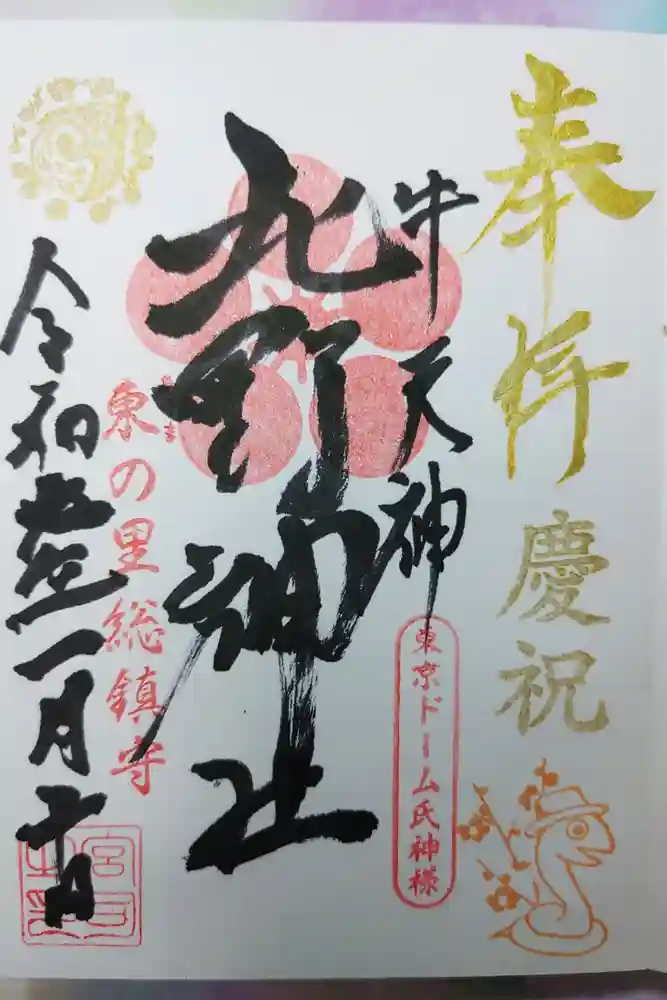 奉拝
慶祝
牛天神
東京ドーム氏神様
北野神社
東の里総鎮守
令和七年一月十日
宮司之印